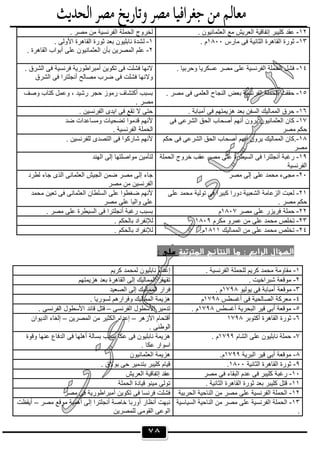 معالم من جغرافيا مصر وتاريخ مصر الحديث
١٢- عقد كليبر إتفاقية العريش مع العثمانيون . لخروج الحملة الفرنسية من مصر .
١٣- ثورة القاهرة الثانية فى مارس ١٨٠٠م . ١- لشدة نابليون بعد ثورة القاهرة الأولى .
٢- علم المصرين بأن العثمانيون على أبواب القاهرة .
١٤- فشل الحملة الفرنسية على مصر عسكريا وحربيا . لانها فشلت فى تكوين أمبراطورية فرنسية فى الشرق .
ولانها فشلت فى ضرب مصالح أنجلترا فى الشرق
١٥- حققت الحملة الفرنسية بعض النجاح العلمى فى مصر . بسبب أكتشاف رموز حجر رشيد ، وعمل كتاب وصف
مصر
١٦- حرق المماليك السفن بعد هزيمتهم فى أمبابة . حتى لا تقع فى ايدى الفرنسين
١٧- كان العثمانيون يرون أنهم أصحاب الحق الشرعى فى
حكم مصر
أنهم قدموا تضحيات ومساعدات ضد
الحملة الفرنسية .
١٨- كان المماليك يرون أنهم أصحاب الحق الشرعى فى حكم
مصر
لأنهم شاركوا فى التصدى للفرنسين .
١٩- رغبة أنجلترا فى السيطرة على مصر عقب خروج الحملة
الفرنسية
تأمين مواصلتها إلى الهند
٢٠- مجىء محمد على إلى مصر جاء إلى مصر ضمن الجيش العثمانى الذى جاء لطرد
الفرنسين من مصر
٢١- لعبت الزعامة الشعبية دورا كبيرا فى تولية محمد على
حكم مصر .
لأنهم ضغطوا على السلطان العثمانى فى تعين محمد
على واليا على مصر
٢٢- حملة فريزر على مصر ١٨٠٧م بسبب رغبة أنجلترا فى السيطرة على مصر .
٢٣- تخلص محمد على من عمرو مكرم ١٨٠٩ للإنفراد بالحكم .
٢٤- تخلص محمد على من المماليك ١٨١١م للإنفراد بالحكم .
السؤال الرابع : ما النتائـج المترتبة على
١- مقاومة محمد كريم للحملة الفرنسية . إعدام نابليون لمحمد كريم
٢- موقعة شبراخيت . تقهقر المماليك إلى القاهرة بعد هزيمتهم
٣- موقعة أمبابة فى يوليو ١٧٩٨م . فرار المماليك إلى الصعيد
٤- معركة الصالحية فى أغسطس ١٧٩٨م هزيمة المماليك وفرارهم لسوريا .
٥- موقعة أبى قير البحرية أغسطس ١٧٩٨م . تدمير الأسطول الفرنسى – قتل قائد الأسطول الفرنسى .
٦- ثورة القاهرة أكتوبر ١٧٩٨ أقتحام الأزهر – إعدام الكثير من المصرين – إلغاء الديوان
الوطنى .
٧- حملة نابليون على الشام ١٧٩٩م . هزيمة نابليون فى عكا بسبب بسالة أهلها فى الدفاع عنها وقوة
أسوار عكا .
٨- موقعة أبى قير البرية ١٧٩٩م. هزيمة العثمانيون
٩- ثورة القاهرة الثانية ١٨٠٠. قيام كليبر بتدمير حى بولاق .
١٠- رغبة كليبر فى عدم البقاء فى مصر عقد إتفاقية العريش
١١- قتل كليبر بعد ثورة القاهرة الثانية . تولى مينو قيادة الحملة
١٢- الحملة الفرنسية على مصر من الناحية الحربية فشلت فرنسا فى تكوين أمبراطورية فى مصر
١٣- الحملة الفرنسية على مصر من الناحية السياسية
.
نبهت أنظار أوربا خاصة أنجلترا إلى أهمية موقع مصر – أيقظت
الوعى القومى للمصرين
٧٨